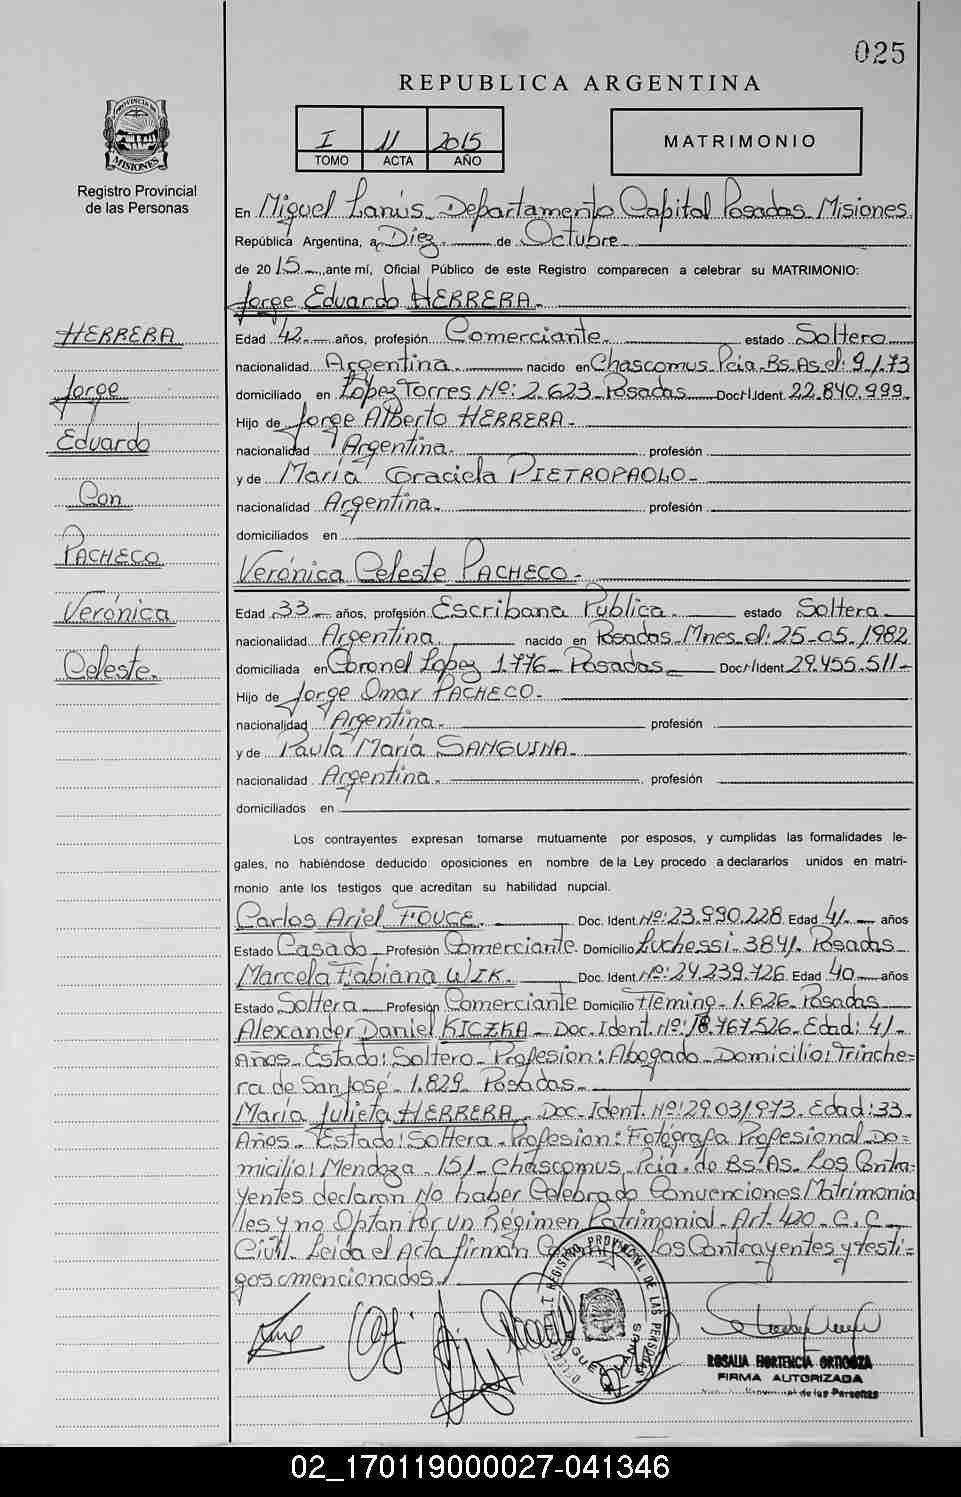 025
REPUBLICA ARGENTINA
I 11 2015
TOMO ACTA AÑO
MATRIMONIO
PROVINCIA DE MISIONES
Registro Provincial
de las Personas
En Miguel Lanús - Departamento Capital Posadas Misiones
República Argentina, a Diez de Octubre
de 2015 ,ante mí, Oficial Público de este Registro comparecen a celebrar su MATRIMONIO:
Jorge Eduardo HERRERA.
HERRERA
Jorge
Eduardo
Con
PACHECO
Verónica
Celeste.
Edad 42 años, profesión Comerciante. estado Soltero
nacionalidad Argentina. nacido en Chascomus Pcia. Bs. As. el: 9/1/73
domiciliado en López Torres Nº: 2.623 Posadas Doc. Ident. 22.840.999.
Hijo de Jorge Alberto HERRERA.
nacionalidad Argentina. profesión
y de María Graciela PIETROPAOLO-
nacionalidad Argentina. profesión
domiciliados en
Verónica Celeste PACHECO.
Edad 33 años, profesión Escribana Pública. estado Soltera
nacionalidad Argentina nacido en Posadas Mnes. el: 25-05-1982
domiciliada en Coronel López 1.776 Posadas Doc. Ident 29.455.511-
Hijo de Jorge Omar PACHECO.
nacionalidad Argentina. profesión
y de Paula María SANGUINA.
nacionalidad Argentina. profesión
domiciliados en
Los contrayentes expresan tomarse mutuamente por esposos, y cumplidas las formalidades le-
gales, no habiéndose deducido oposiciones en nombre de la Ley procedo a declararlos unidos en matri-
monio ante los testigos que acreditan su habilidad nupcial.
Carlos Ariel FOUCE. Doc. Ident Nº: 23.990.228 Edad 41. años
Estado Casado Profesión Comerciante. Domicilio Luchessi 3841. Posadas
Marcela Fabiana WIK. Doc. Ident Nº: 24.239.726 Edad 40 años
Estado Soltera Profesión Comerciante Domicilio Fleming - 1.626 Posadas
Alexander Daniel KICZKA - Doc. Ident. Nº: 18.767.526. Edad: 41-
Años - Estado: Soltero - Profesion: Abogado - Domicilio: Trinche-
ra de San José - 1.829 Posadas.
María Julieta HERRERA - Doc. Ident. Nº: 29.031.973. Edad: 33.
Años - Estado: Soltera - Profesion: Fotógrafa Profesional Do-
micilio: Mendoza - 151 - Chascomus. Pcia. de Bs. As. Los Contra-
yentes declaran No haber Celebrado Convenciones Matrimonia
les y no Optan Por un Régimen Patrimonial - Art. 420 - C.C.
Civil. Leida el Acta firman Los Contrayentes y testi-
gos mencionados.
REGISTRO PROVINCIAL DE LAS PERSONAS
MIGUEL LANUS
ROSALIA HORTENCIA ORTIGOZA
FIRMA AUTORIZADA
de las Personas
02_170119000027-041346